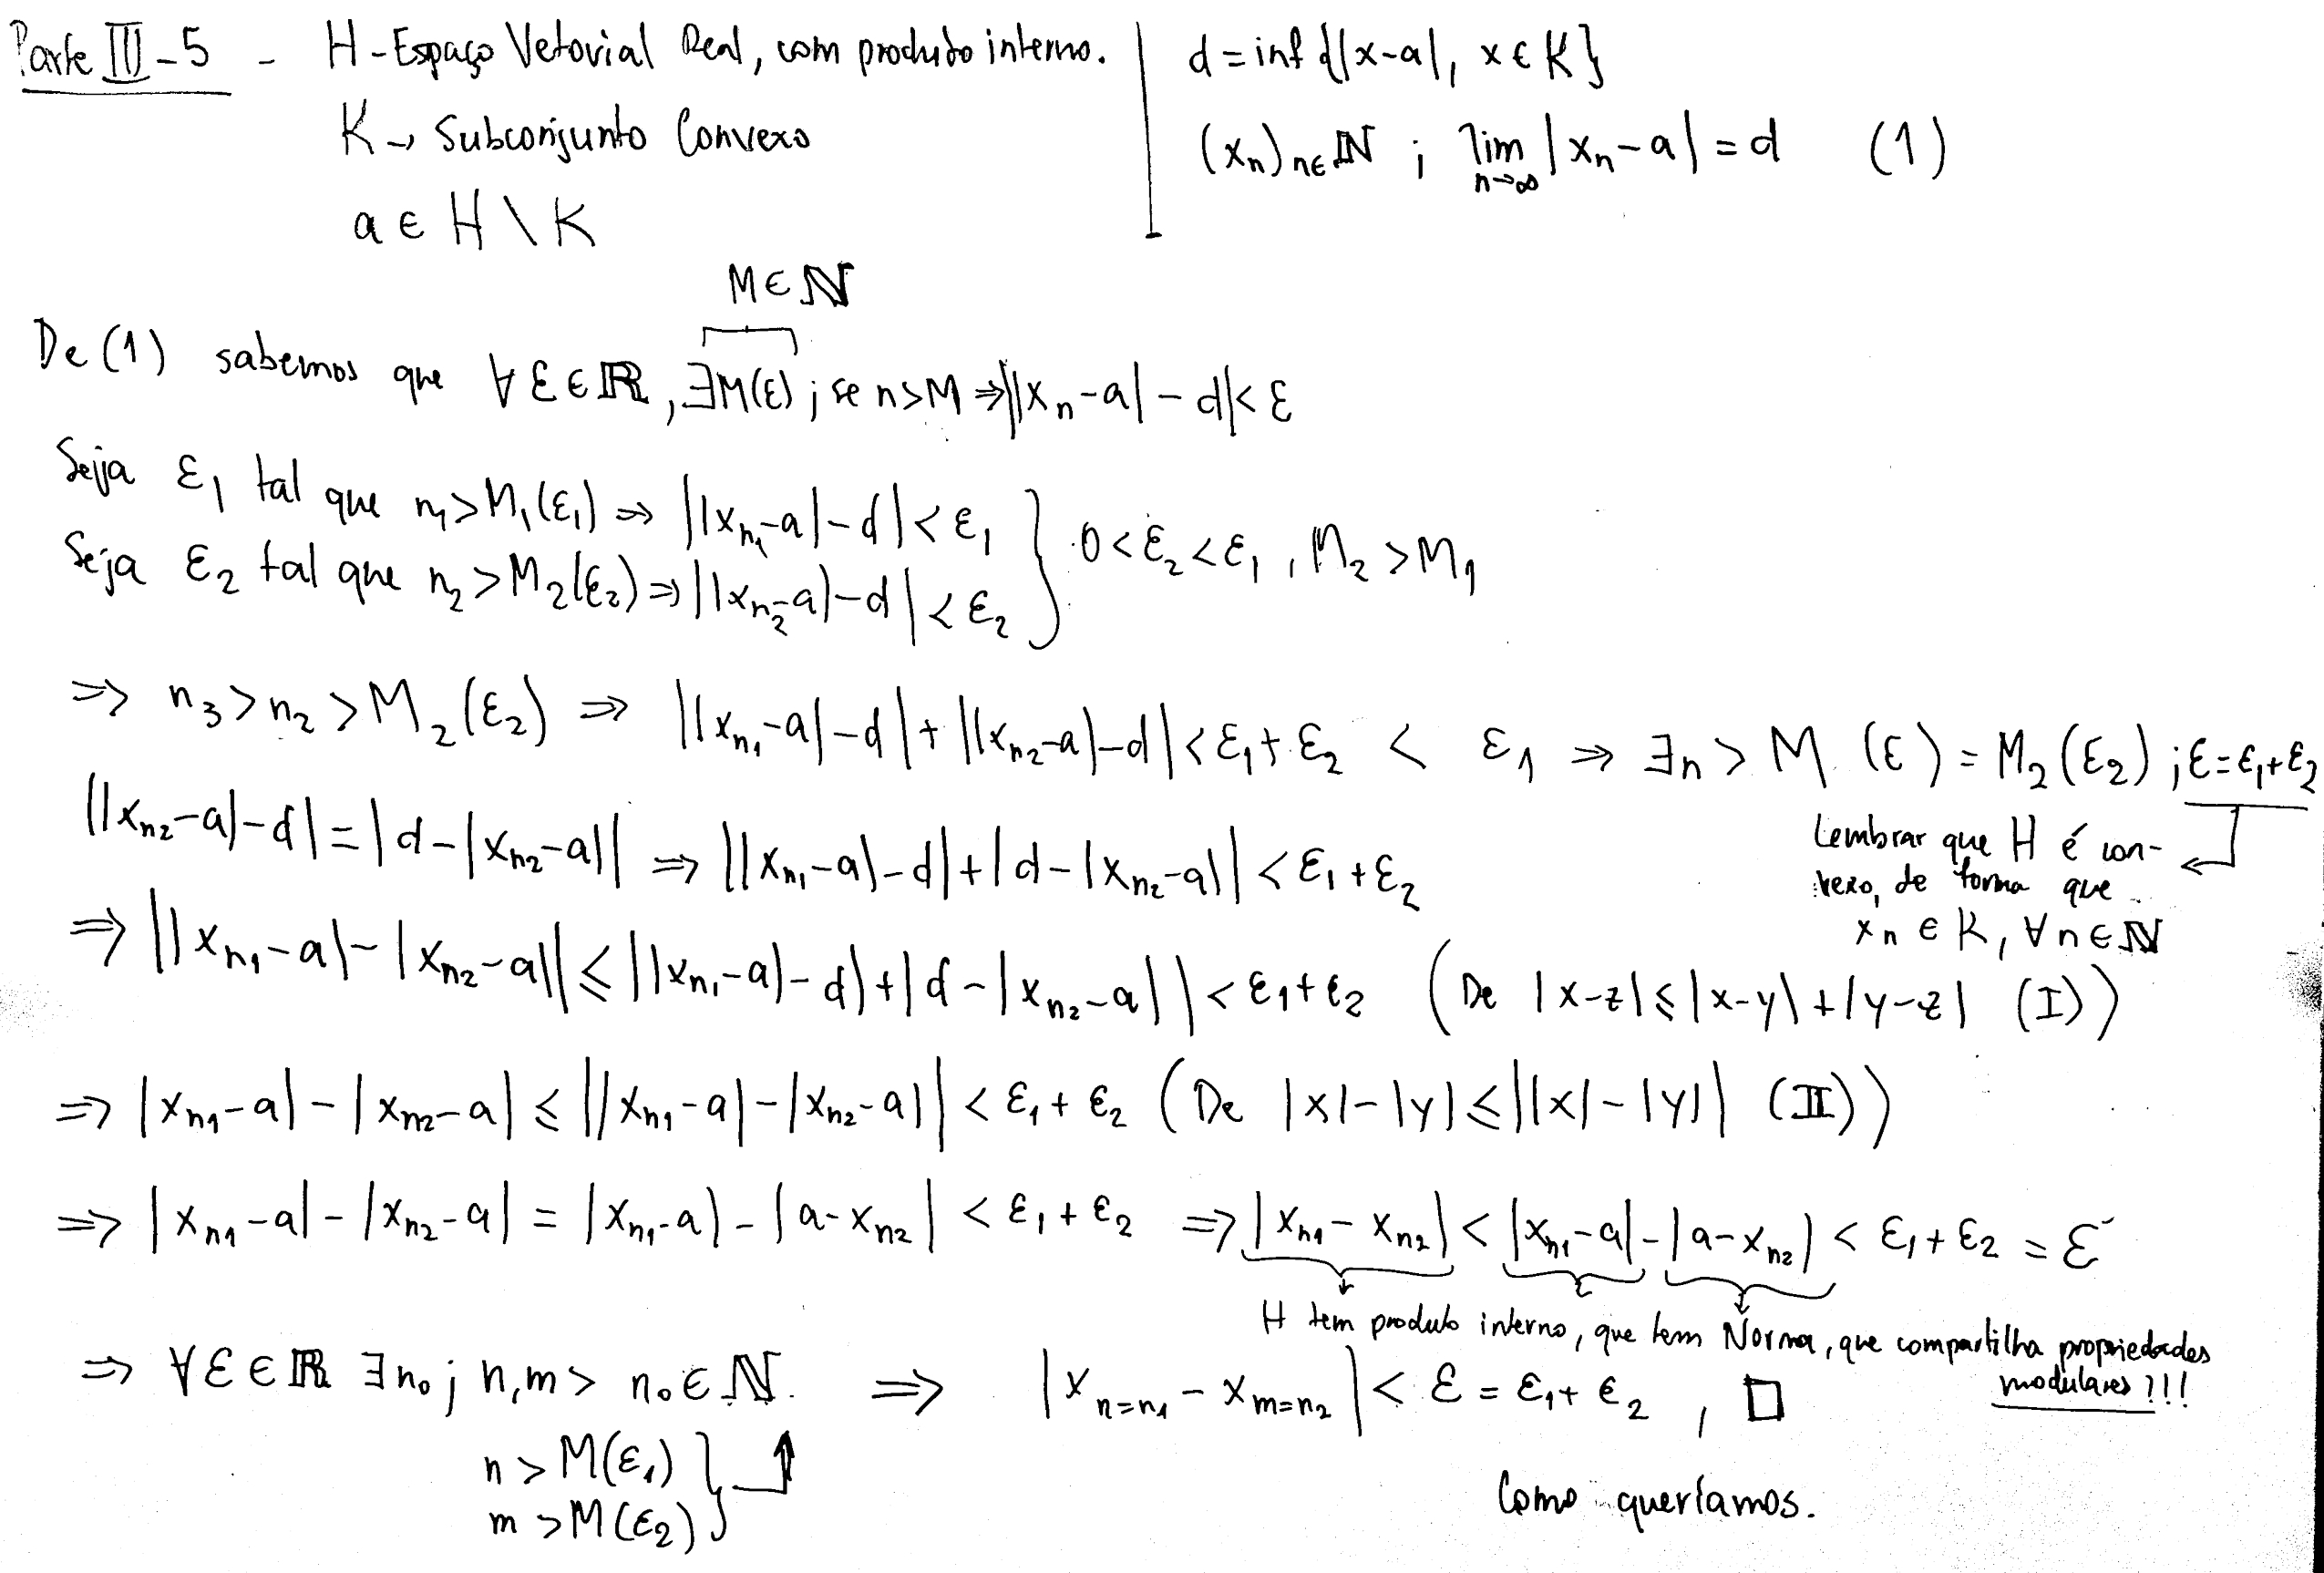 Parte III - 5 - H - Espaço Vetorial Real, com produto interno. | d = inf {|x-a|, x ∈ K}
K → Subconjunto Convexo
(xn) n∈ℕ ; lim n→∞ |xn - a| = d (1)
a ∈ H \ K
M ∈ ℕ
De (1) sabemos que ∀ ε ∈ ℝ, ∃M(ε) ; se n > M ⇒ ||xn - a| - d| < ε
Seja ε1 tal que n1 > M1(ε1) ⇒ ||xn1 - a| - d| < ε1
Seja ε2 tal que n2 > M2(ε2) ⇒ ||xn2 - a| - d| < ε2 } 0 < ε2 < ε1, M2 > M1
⇒ n3 > n2 > M2(ε2) ⇒ ||xn1 - a| - d| + ||xn2 - a| - d| < ε1 + ε2 < ε1 ⇒ ∃n > M (ε) = M2(ε2) ; ε = ε1 + ε2
||xn2 - a| - d| = |d - |xn2 - a|| ⇒ ||xn1 - a| - d| + |d - |xn2 - a|| < ε1 + ε2
Lembrar que H é con-
vexo, de forma que
xn ∈ K, ∀n ∈ ℕ
⇒ ||xn1 - a| - |xn2 - a|| ≤ ||xn1 - a| - d| + |d - |xn2 - a|| < ε1 + ε2 (De |x-z| ≤ |x-y| + |y-z| (I))
⇒ |xn1 - a| - |xn2 - a| ≤ ||xn1 - a| - |xn2 - a|| < ε1 + ε2 (De |x| - |y| ≤ ||x| - |y|| (II))
⇒ |xn1 - a| - |xn2 - a| = |xn1 - a| - |a - xn2| < ε1 + ε2 ⇒ |xn1 - xn2| < |xn1 - a| - |a - xn2| < ε1 + ε2 = ε
H tem produto interno, que tem Norma, que compartilha propriedades
modulares ?!!
⇒ ∀ ε ∈ ℝ ∃ n0 ; n,m > n0 ∈ ℕ. ⇒ |x n=n1 - x m=n2| < ε = ε1 + ε2, □
n > M(ε1)
m > M(ε2)
Como queríamos.